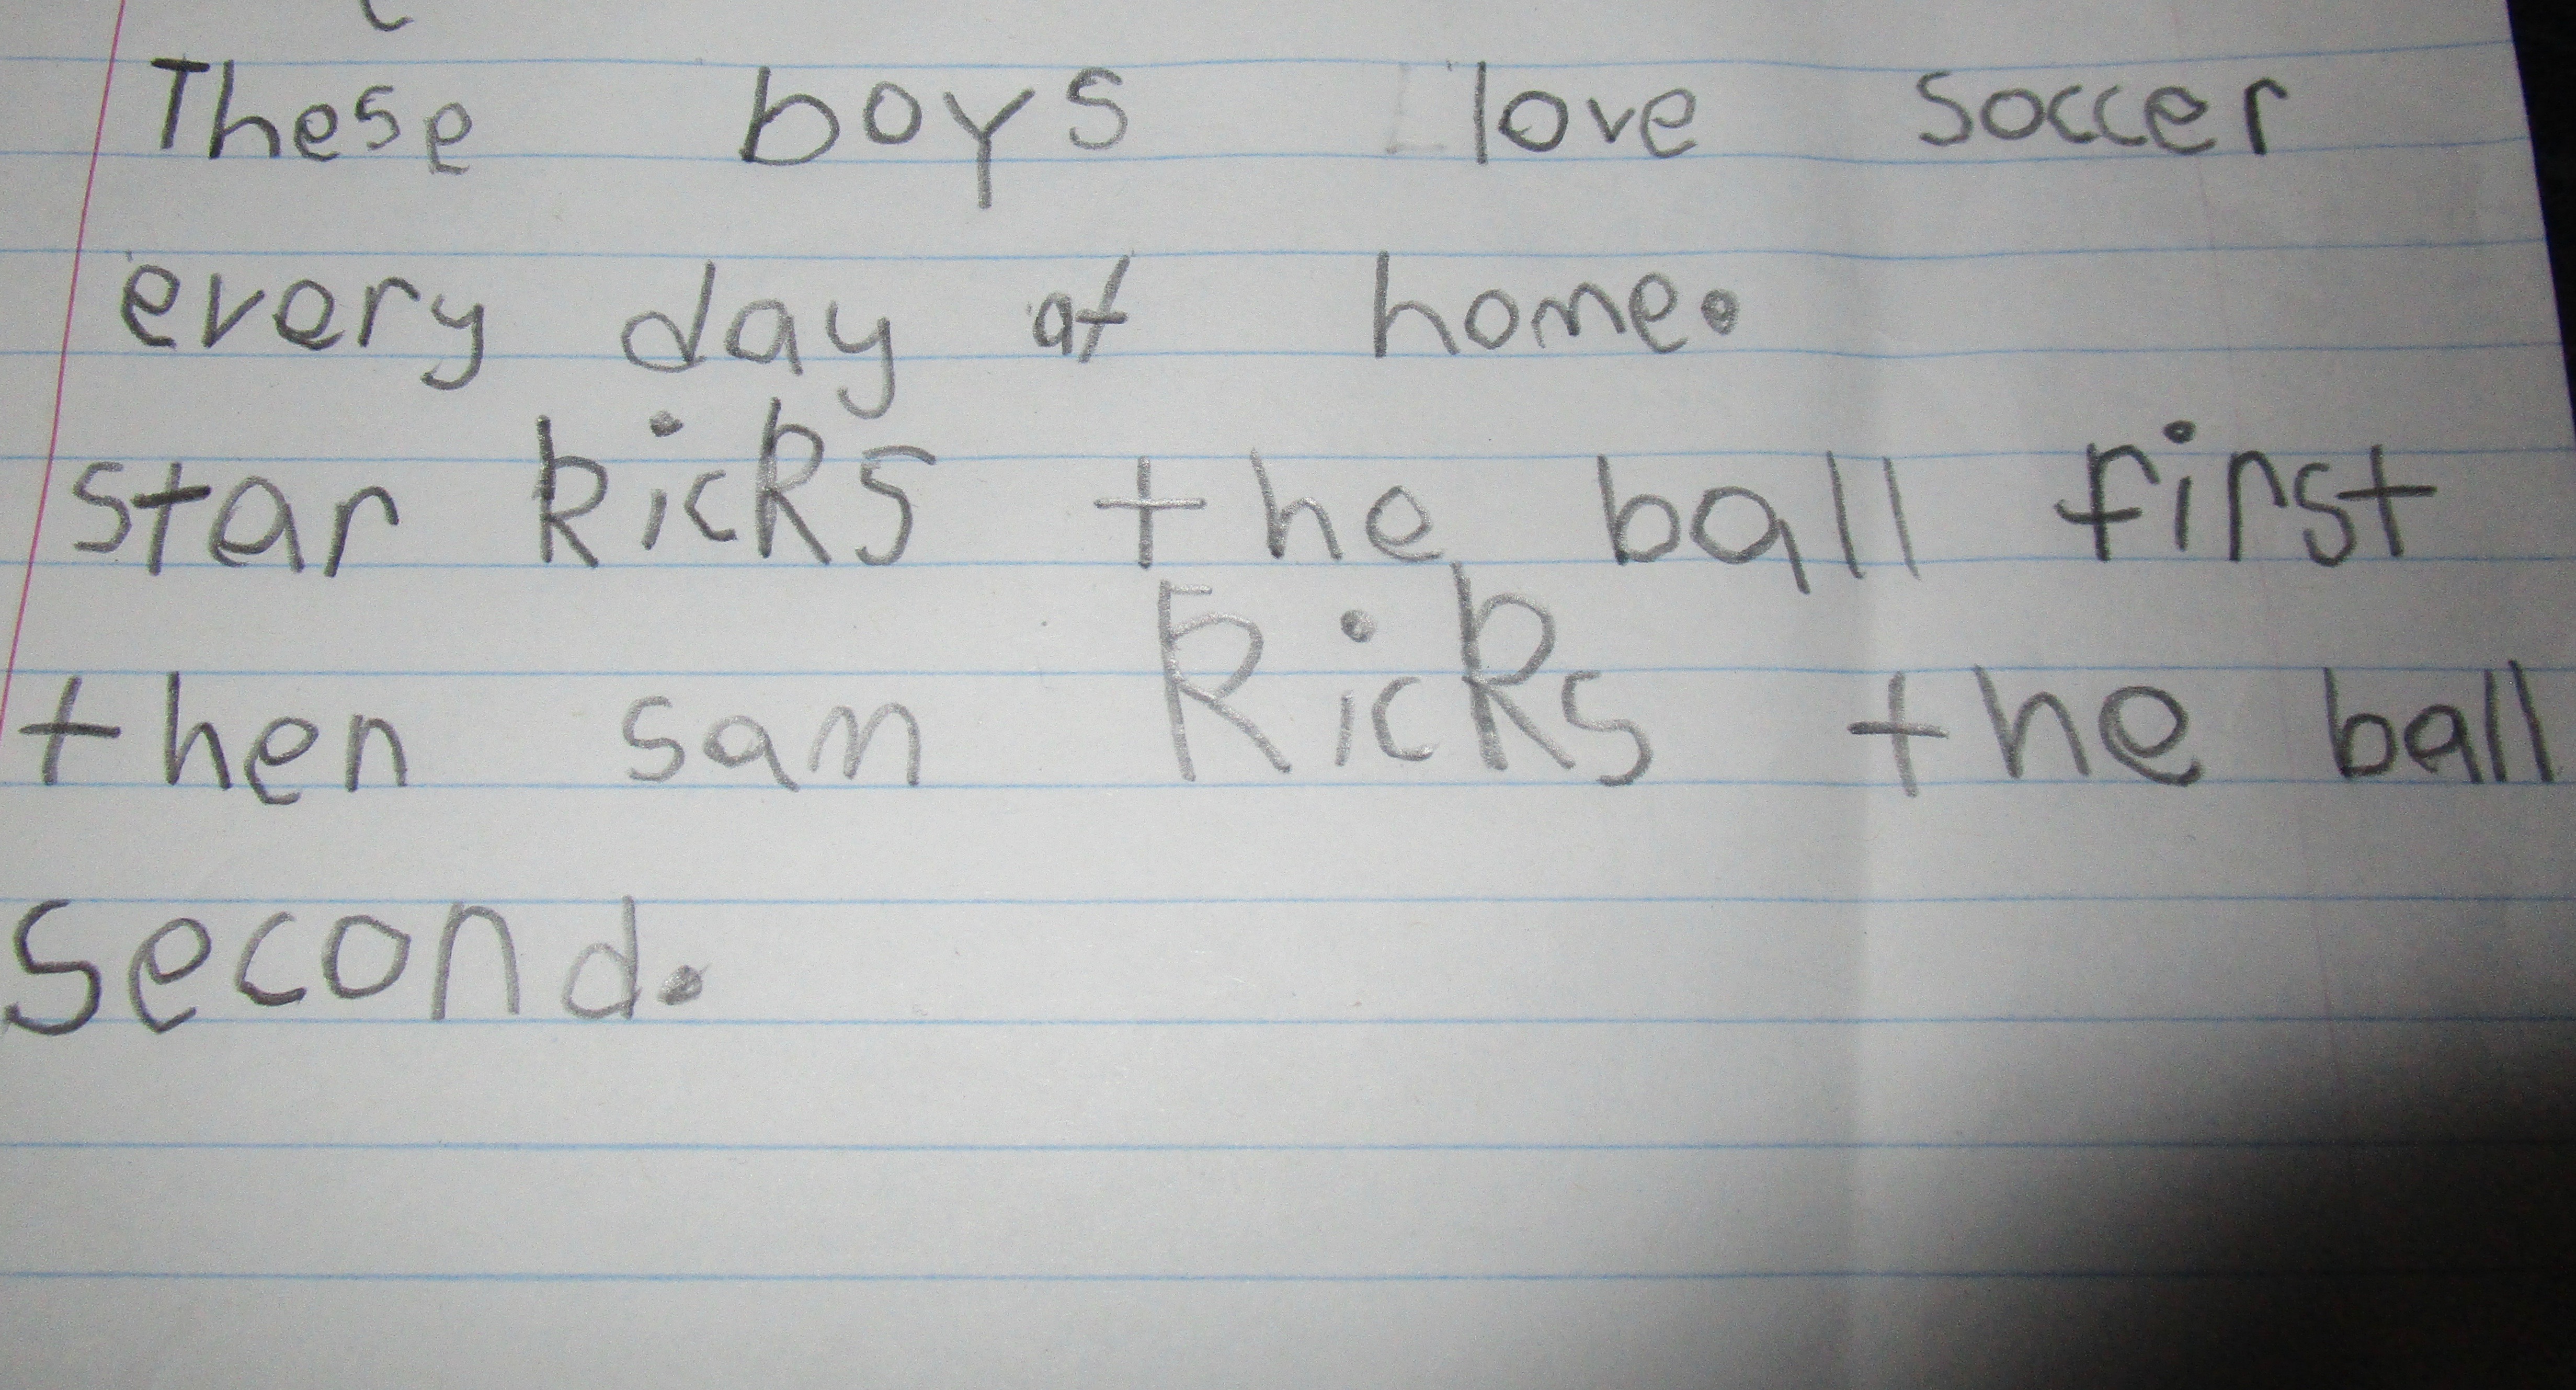 These boys love soccer
every day at home.
star kicks the ball first
then sam kicks the ball
second.